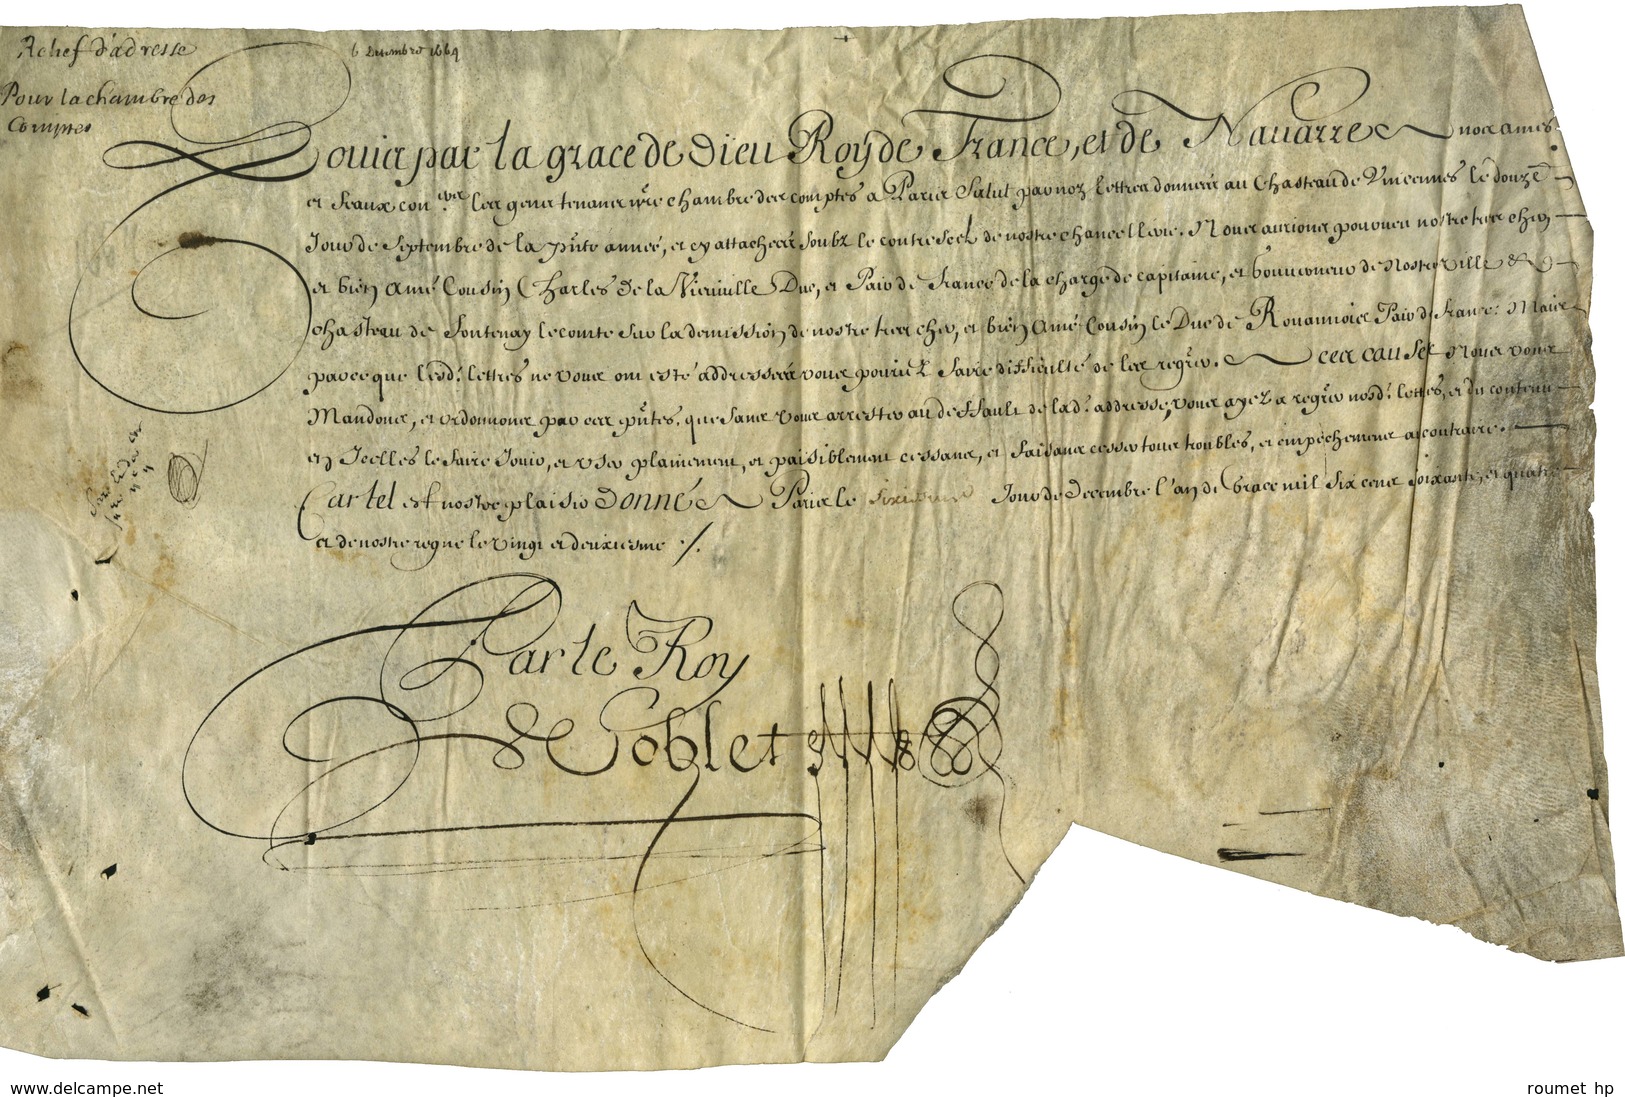 Relief d'adresse
Pour la chambre des
Comptes
6 decembre 1664
Louis par la grace de Dieu Roy de France, et de Navarre nos amez
et feaux con.ers les gens tenans n.re chambre des comptes a Paris Salut par noz lettres données au Chasteau de Vincennes le douze
Jour de Septembre de la p.nte année, et cy attachées soubz le contreseel de nostre chancellerie. Nous aurions pourveu nostre tres cher
et bien Amé Cousin Charles de la Vieuville Duc, et Pair de France de la charge de capitaine, et Gouverneur de Nostre ville &
chasteau de Fontenay le comte sur la demission de nostre tres cher, et bien Amé Cousin le Duc de Rouannois Pair de France. Mais
parce que lesd. lettres ne vous ont esté addressées vous pouriez faire difficulté de les regrer. A ces causes Nous vous
Mandons, et ordonnons par ces p.ntes, que sans vous arrester au deffault de lad. addresse, vous ayez a regrer nosd. lettres, et du contenu
en Icelles le faire Jouir, et user plainement, et paisiblement cessans, et faisans cesser tous troubles, et empechemens au contraire.
Car tel est nostre plaisir Donné A Paris le sixieme Jour de Decembre l'an de Grace mil six cens soixante, et quatre
et de nostre regne le vingt et deuxiesme /.
Par le Roy
Coblet
www.delcampe.net
roumet_hp